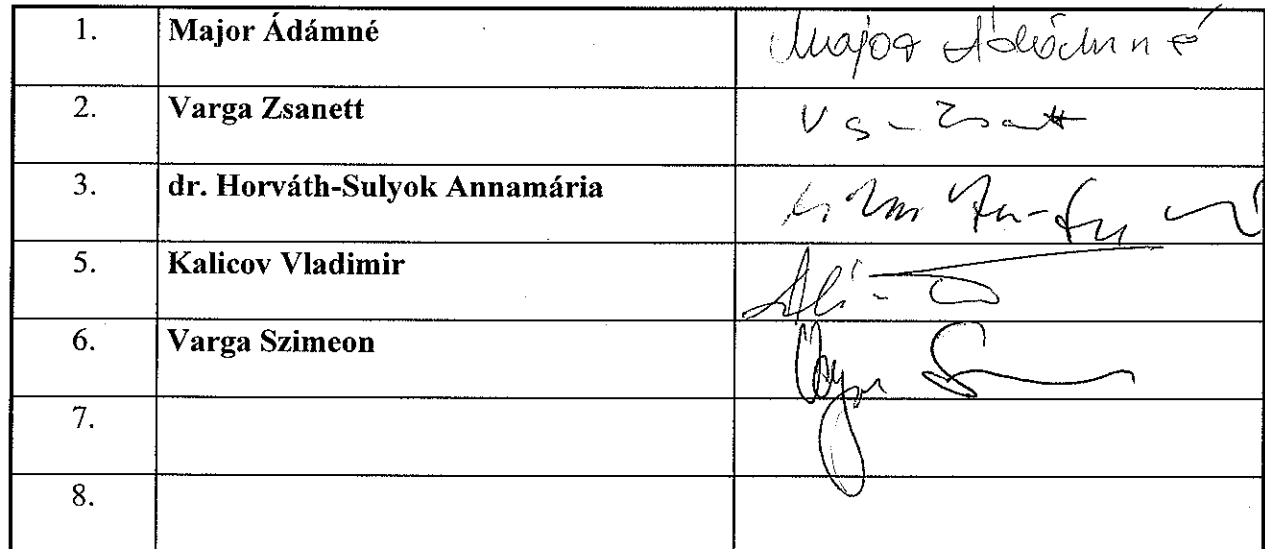 1. Major Ádámné Major Ádámné
2. Varga Zsanett
3. dr. Horváth-Sulyok Annamária
5. Kalicov Vladimir
6. Varga Szimeon
7.
8.